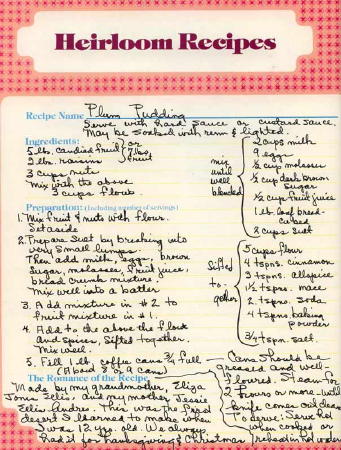 Heirloom Recipes
Recipe Name Plum Pudding
Serve with hard sauce or custard sauce.
May be soaked with rum & lighted.
Ingredients:
5 lbs. candied fruit } or
2 lbs. raisins } 7 lbs. fruit
3 cups nuts
Mix with the above
3 cups flour
mix
until
well
blended
2 cups milk
9 eggs
1/2 cup molasses
1/2 cup dark brown
sugar
1/2 cup fruit juice
1 lb. loaf bread-
cubed
2 cups suet
Preparation: (Including number of servings)
1. Mix fruit & nuts with flour.
Set aside
2. Prepare suet by breaking into
very small lumps.
Then add milk, eggs, brown
sugar, molasses, fruit juice,
bread crumb mixture.
Mix well into a batter
3. Add mixture in #2 to
fruit mixture in #1.
4. Add to the above the flour
and spices, sifted together.
Mix well.
5. Fill 1 lb. coffee cans 3/4 full —
(About 8 or 9 cans)
Sifted
to-
gether
5 cups flour
4 tspns. cinnamon
3 tspns. allspice
1 1/2 tspns. mace
2 tspns. soda
4 tspns. baking
powder
3/4 tspn. salt.
Cans should be
greased and well-
floured. Steam for
2 hours or more - until
knife comes out clean
To serve: Serve hot
when cooked or
reheat in hot water
The Romance of the Recipe
Made by my grandmother, Eliza
Jones Ellis, and my mother Jessie
Ellis Andre. This was the first
desert I learned to make when
I was 12 yrs. old. We always
had it for Thanksgiving & Christmas